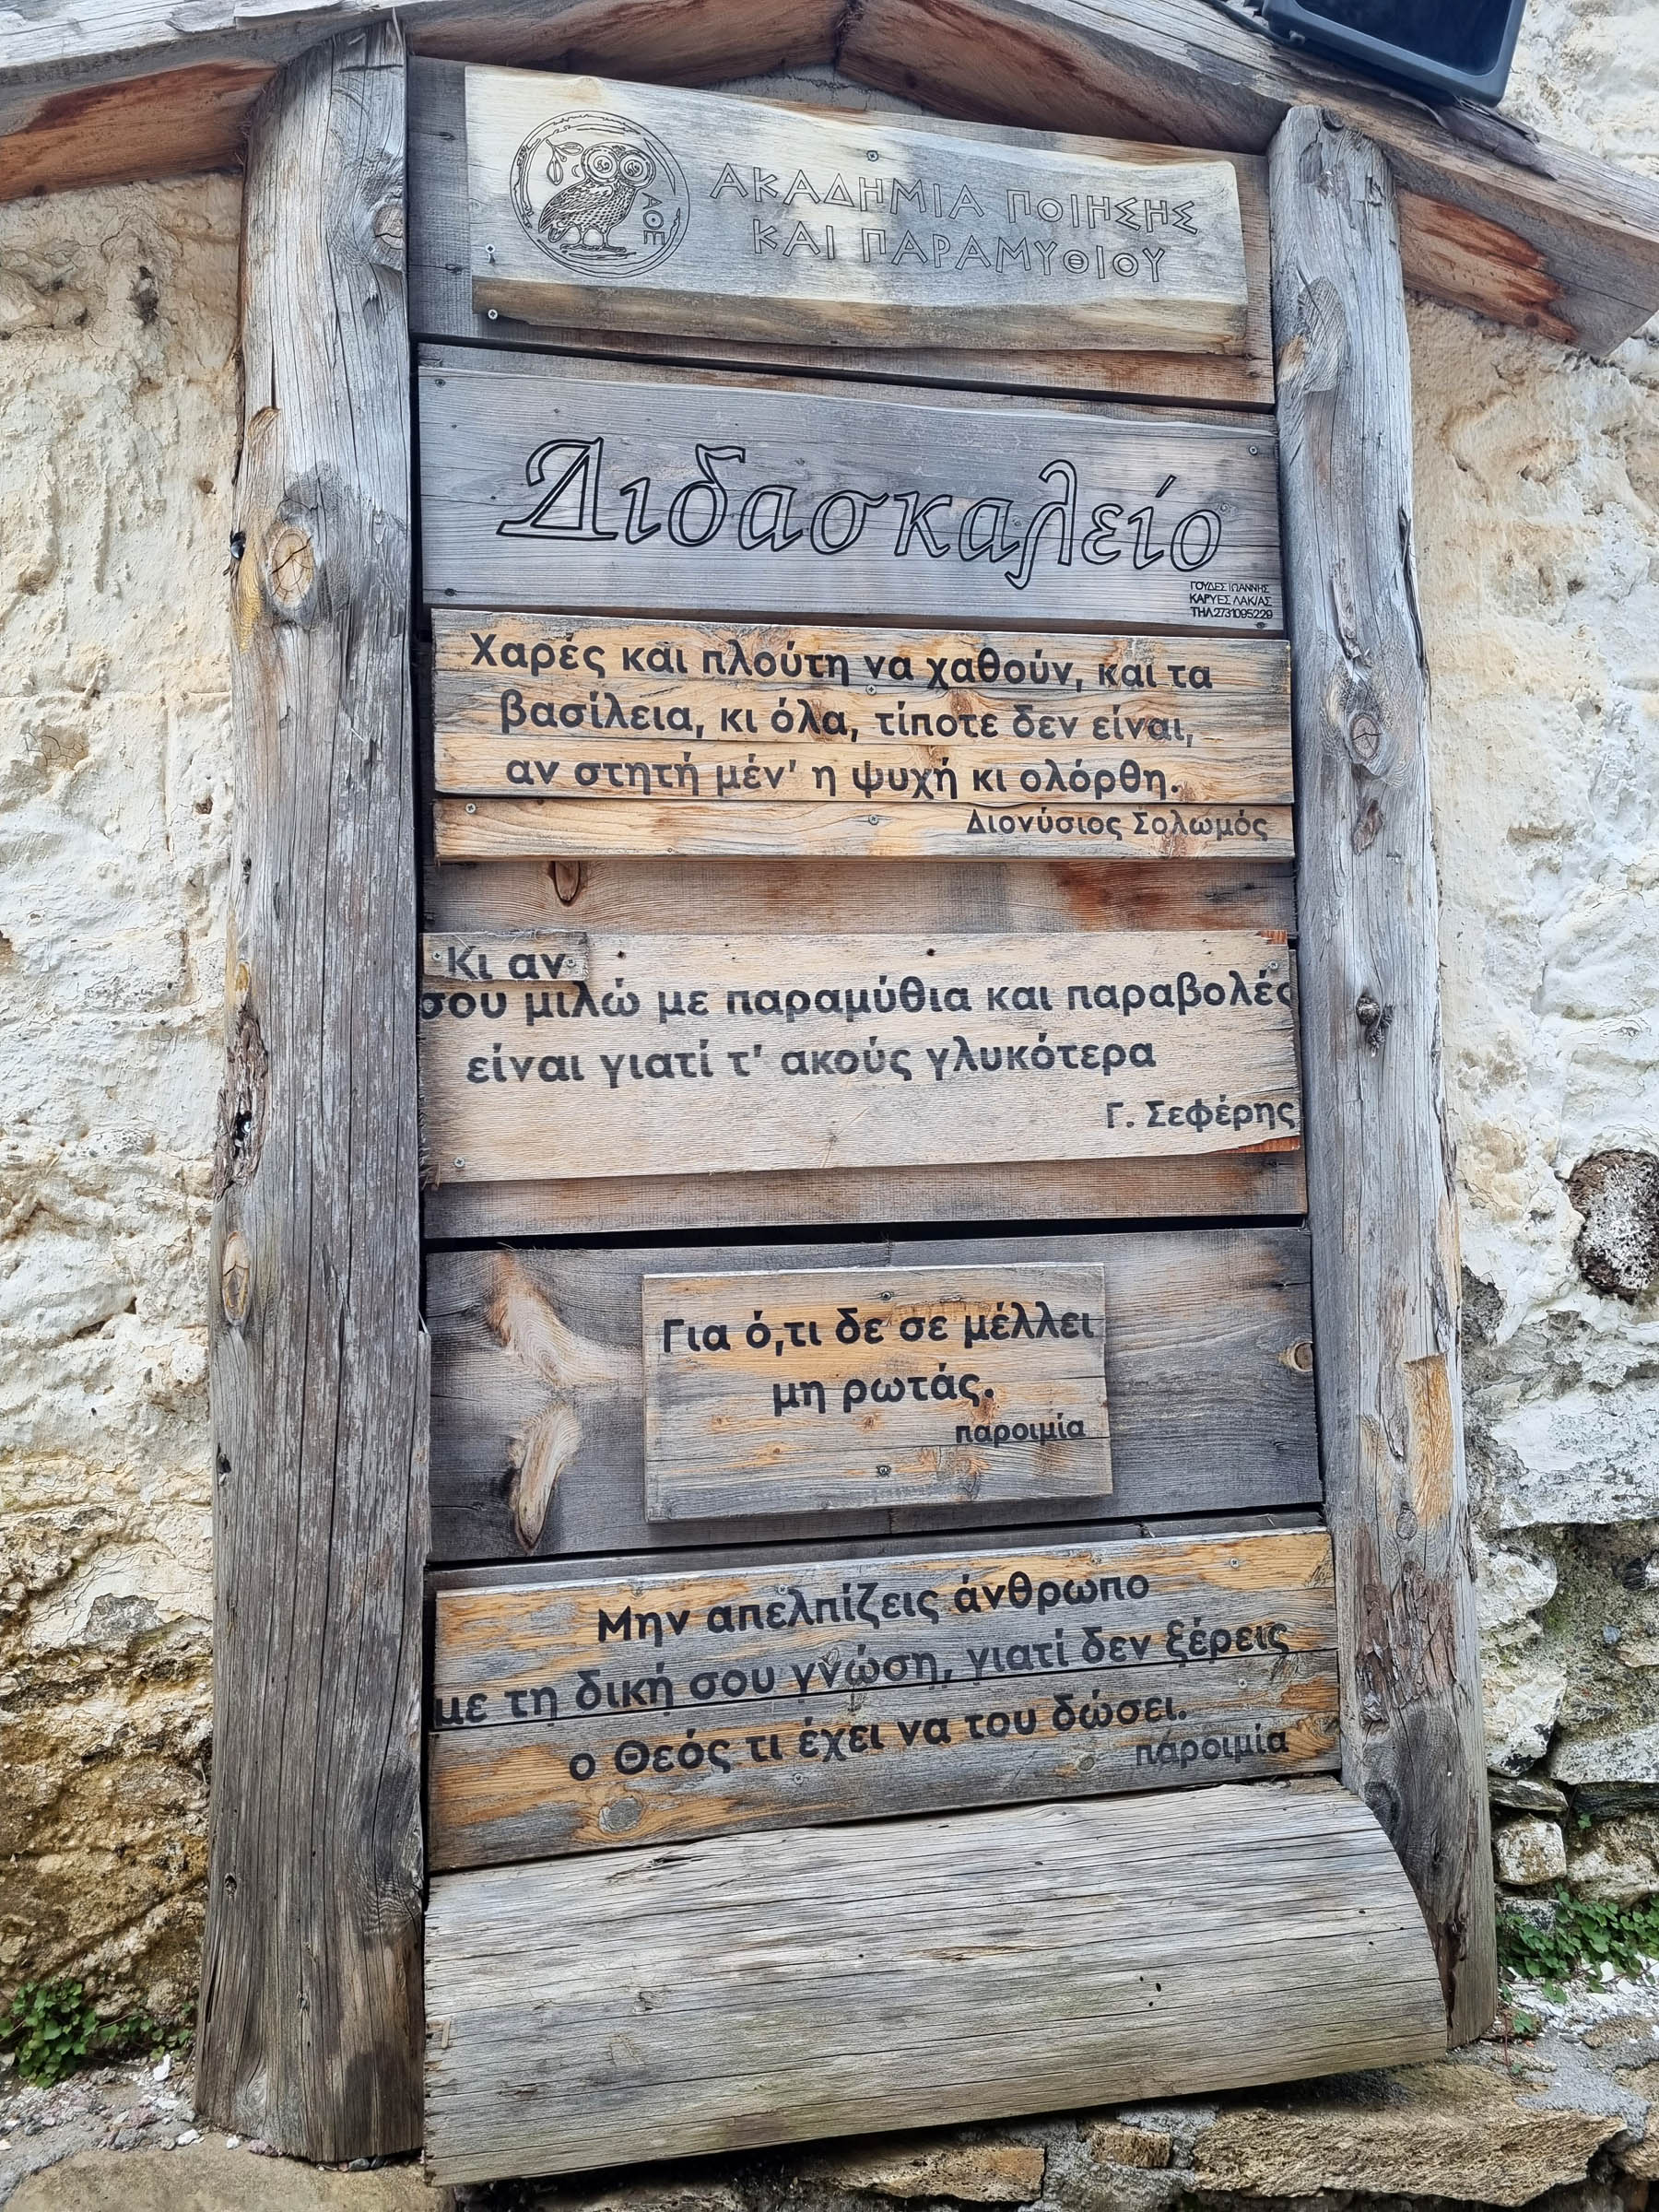 ΑΘΕ
ΑΚΑΔΗΜΙΑ ΠΟΙΗΣΗΣ
ΚΑΙ ΠΑΡΑΜΥΘΙΟΥ
Διδασκαλείο
ΓΟΥΔΕΣ ΙΩΑΝΝΗΣ
ΚΑΡΥΕΣ ΛΑΚ/ΑΣ
ΤΗΛ.2731095229
Χαρές και πλούτη να χαθούν, και τα
βασίλεια, κι όλα, τίποτε δεν είναι,
αν στητή μέν' η ψυχή κι ολόρθη.
Διονύσιος Σολωμός
Κι αν
σου μιλώ με παραμύθια και παραβολές
είναι γιατί τ' ακούς γλυκότερα
Γ. Σεφέρης
Για ό,τι δε σε μέλλει
μη ρωτάς.
παροιμία
Μην απελπίζεις άνθρωπο
με τη δική σου γνώση, γιατί δεν ξέρεις
ο Θεός τι έχει να του δώσει.
παροιμία